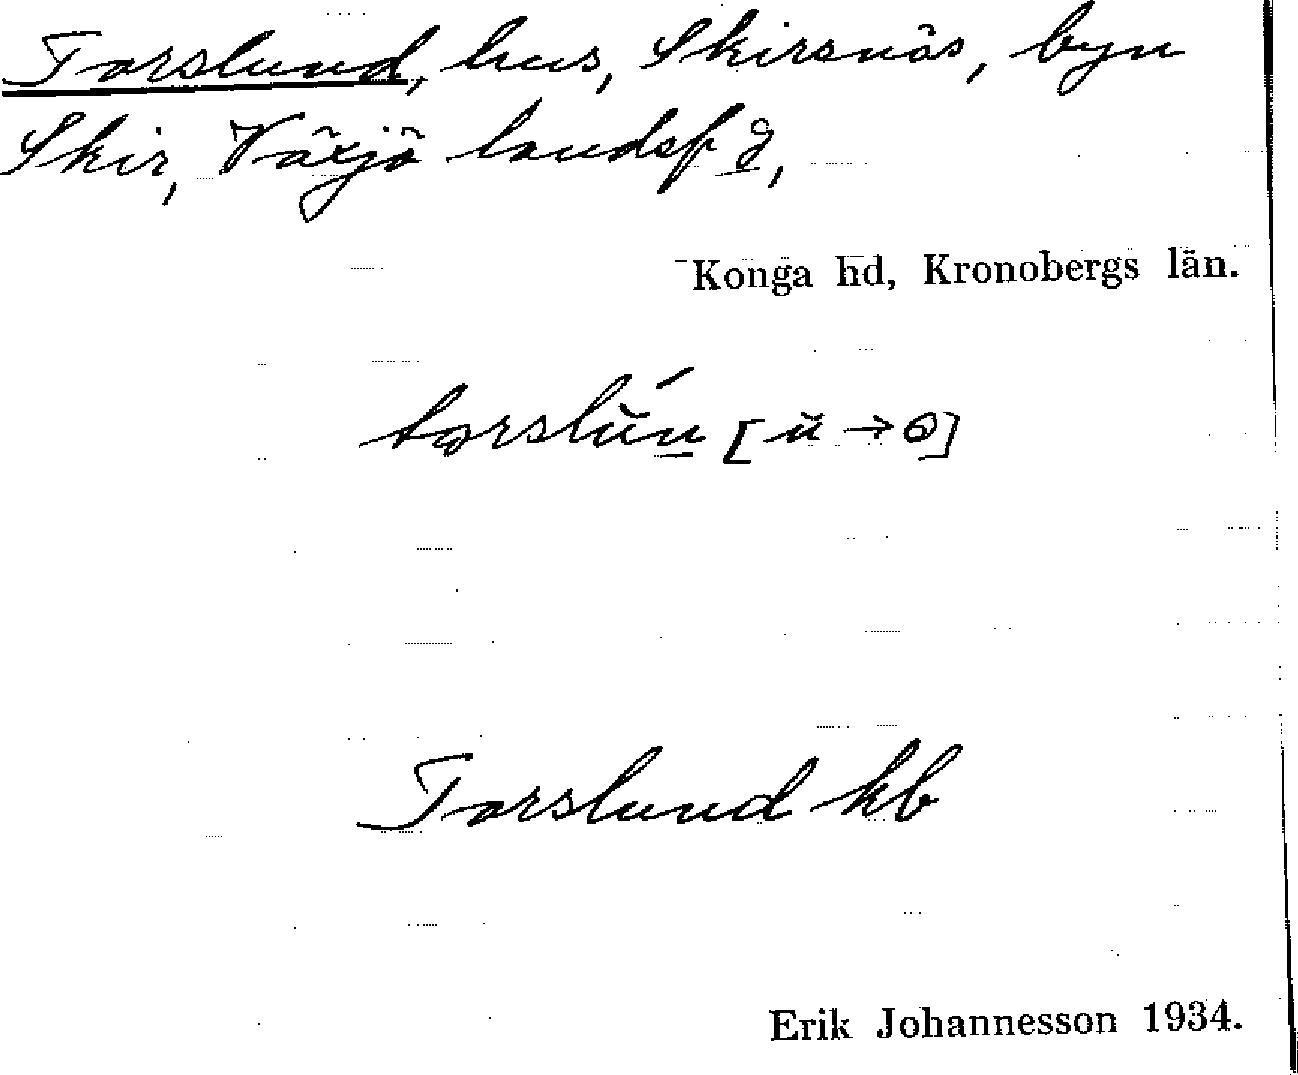 Torslund, hus, Skirsnäs, byn
Skir, Växjö landsf d,
Konga hd, Kronobergs län.
torslŭ́n [ŭ → ɵ]
Torslund kb
Erik Johannesson 1934.